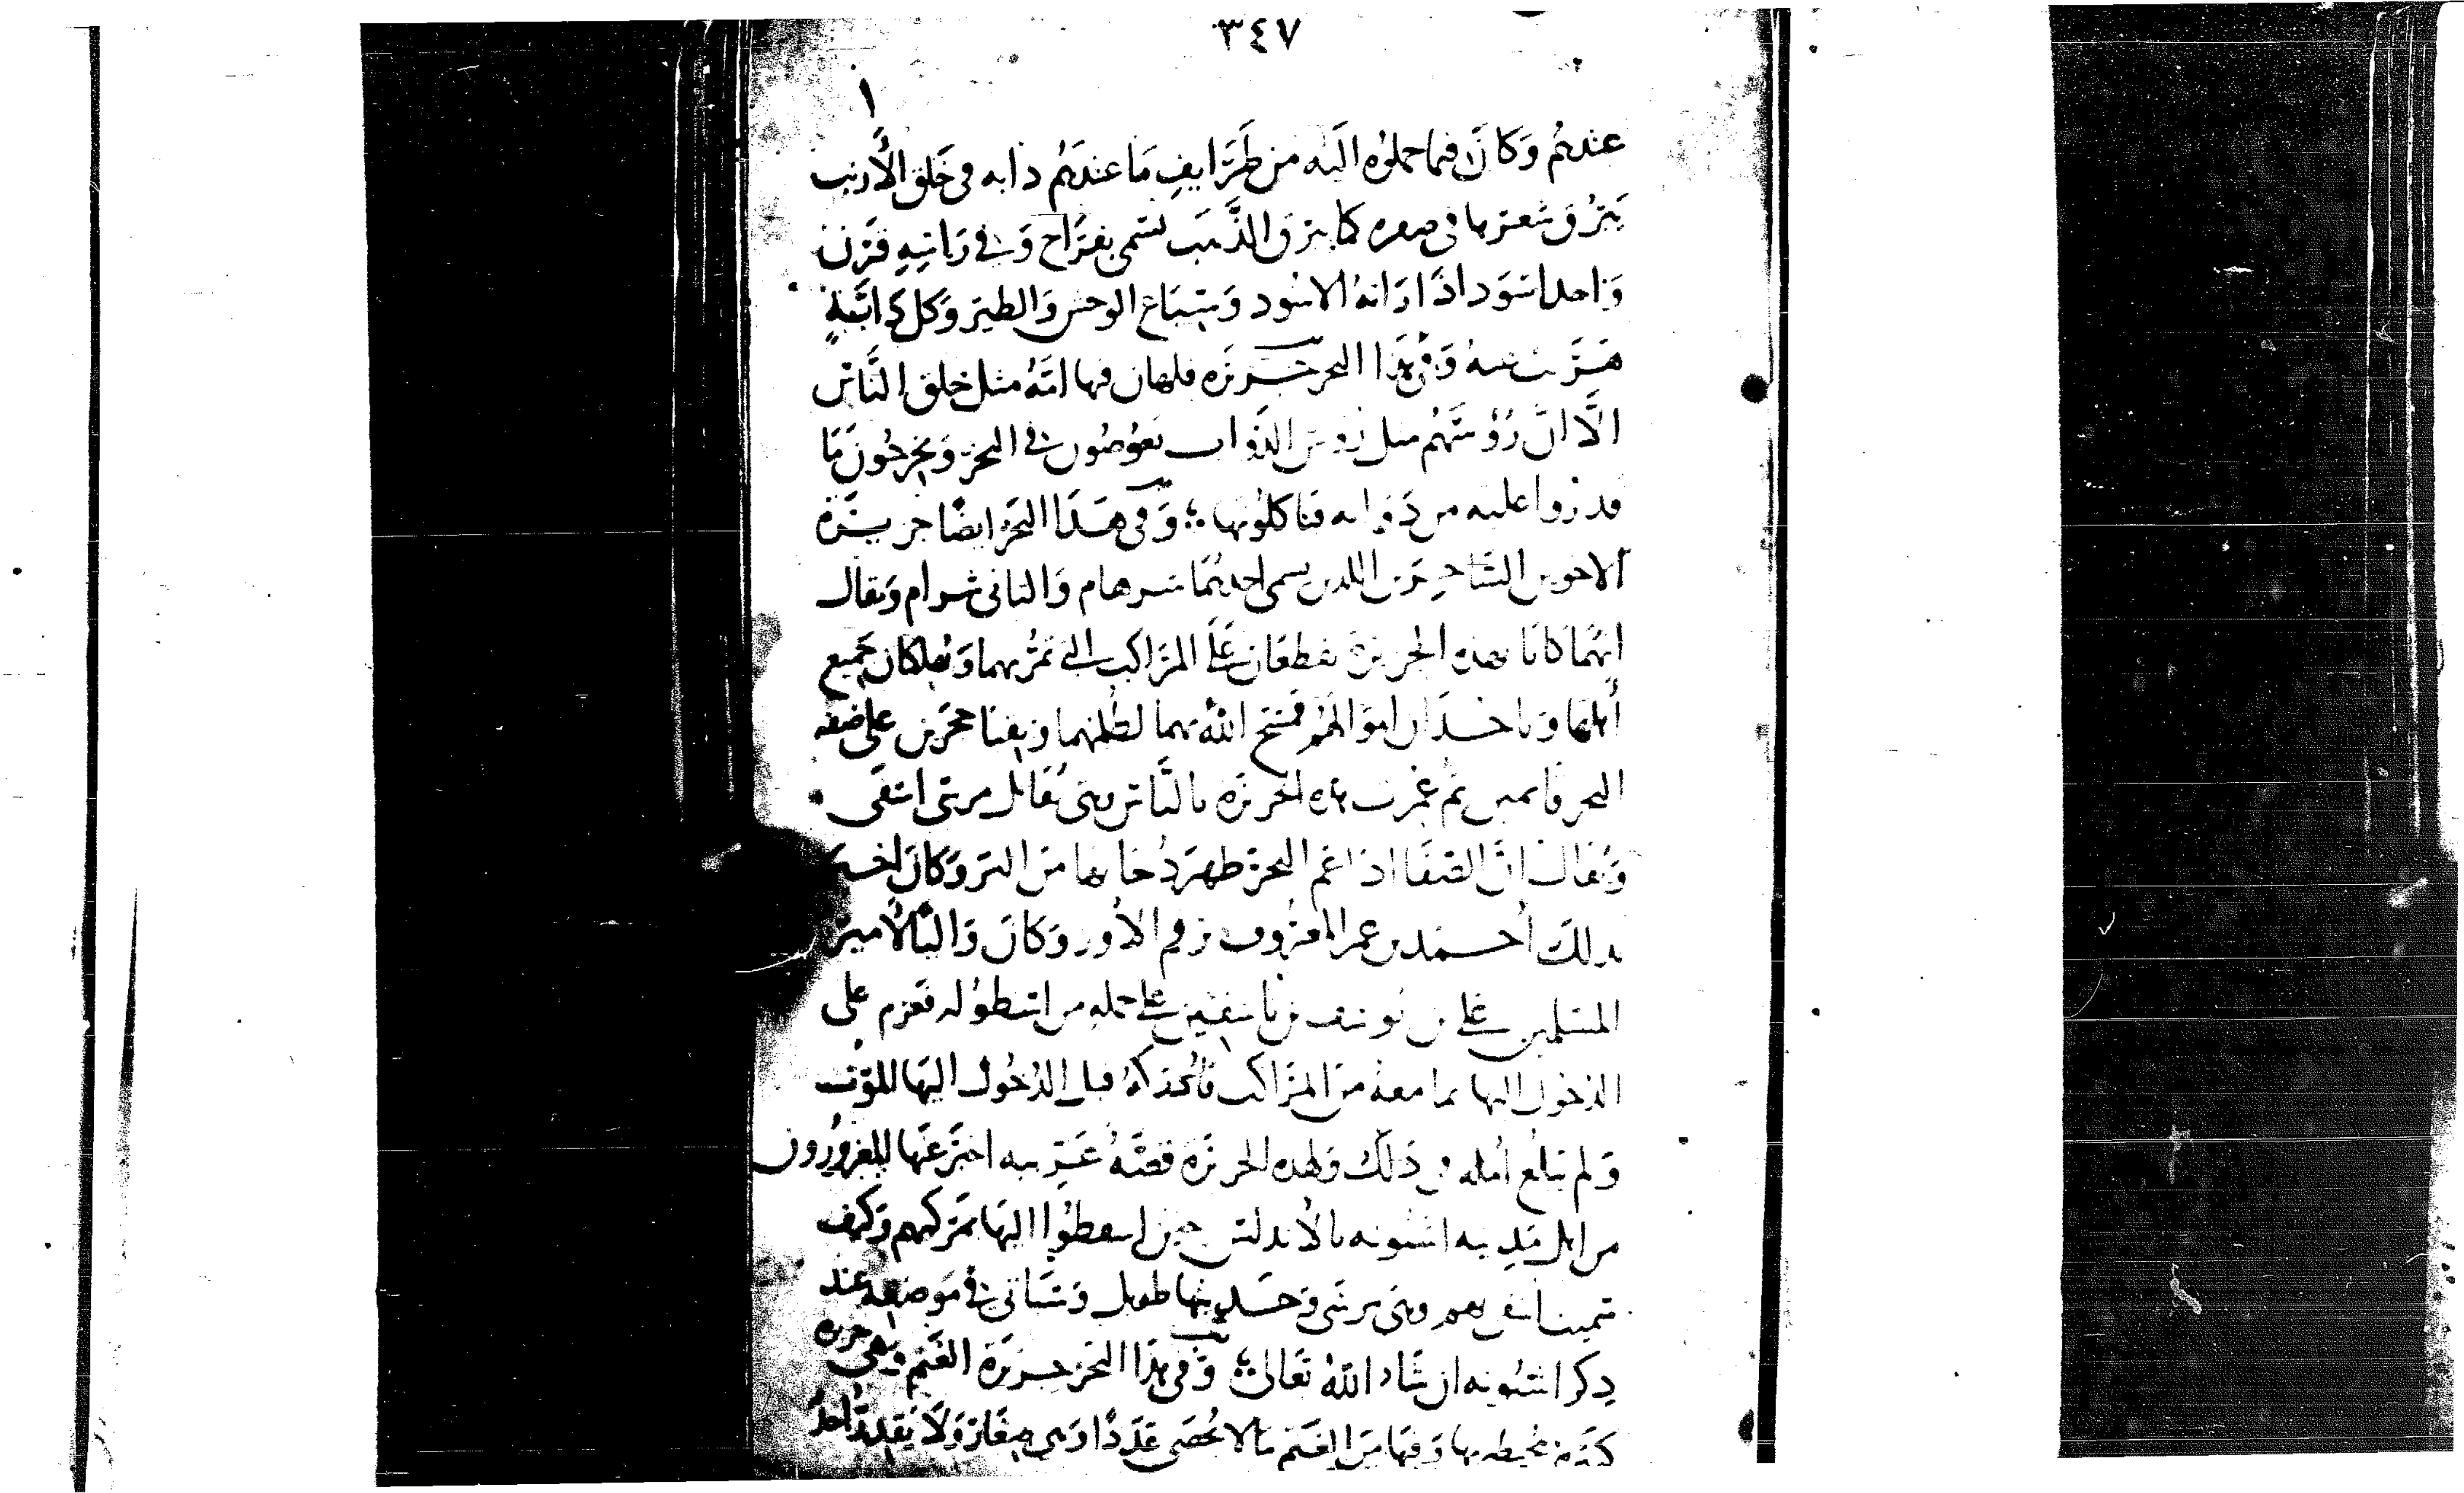 ٣٤٧
١
عندهم وَكانَ فيما حملوه اليه من طَرَايفِ مَا عندَهم دابه في خَلق الأرنب
يَبرُق شعرها في صفره كما يبرق الذَّهَب تسمى بغراج وَفي رَاسِهِ قَرن
وَاحد اسَود اذا رَاته الاسُود وَسِبَاع الوحش وَالطير وَكل دَابَّةٍ
هَرَبت عنه وَفي هَذا البحر جزيرَه قلهان فيها امّه مثل خلق النَّاس
الَّا انَّ رُؤُسَهُم مثل رُوس الدَوَاب يغوصُون في البحر وَيخرجُون مَا
قدروا عليه من دَوابه فيأكلونها وَفي هَذَا البَحر ايضًا جزيرَة
الاخوين السَّاحِرَين اللذين يسمى احدهما شرهام وَالثاني شرام وَيقال
انهُما كانَا بهذه الجزيرَة يقطعَان عَلَى المرَاكب التي تمرُّ بهما وَيهلكان جَميع
أهلها وَياخذَان اموَالهم فمَسخ اللهُ بهما لظلمهما وَبقيا حجرَين على ضفه
البحر قايمين ثم عُمرت هذه الجزيرَه بالنَّاس وهى تُقَابل مرسَى اسَفى
وَيُقال انَّ الصَفَا اذا عَم البحرَ ظهَر دُخانها من البَر وَكانَ اخبَر
بذلكَ أحمَد بن عمر المعرُوف برقم الأوز وَكانَ وَاليًا لأمير
المسلمين عَلى بن يُوسُف بن تَاشفين على جمله من اسطوله فعَزم على
الدخول اليها بما معه منَ المرَاكب فأدركهُ قبل الدُخُول اليهَا الموت
وَلم يَبلُغ أمله في ذَلك وَلهذه الجزيرَة قصَّةٌ غَرِيبه اخبرَ عَنها المغرورُون
من اهل مَدينه اشبونه بالأندلس حين اسقطوا اليهَا بمركبهم وَكيف
تسمينا اسفى بهم وهى مرسَى وَحَديثها طويل وَسَيأتي في مَوضعه عند
ذِكر اشبونه ان شاءَ اللهُ تَعَالى وَفي هذا البَحر جزيرَة الغَنم وهَى جزيره
كبيره تحيط بها وَفيهَا منَ الغَنم مَا لا يُحصَى عَدَدًا وَهى صغَار وَلَا يَقدر احدٌ